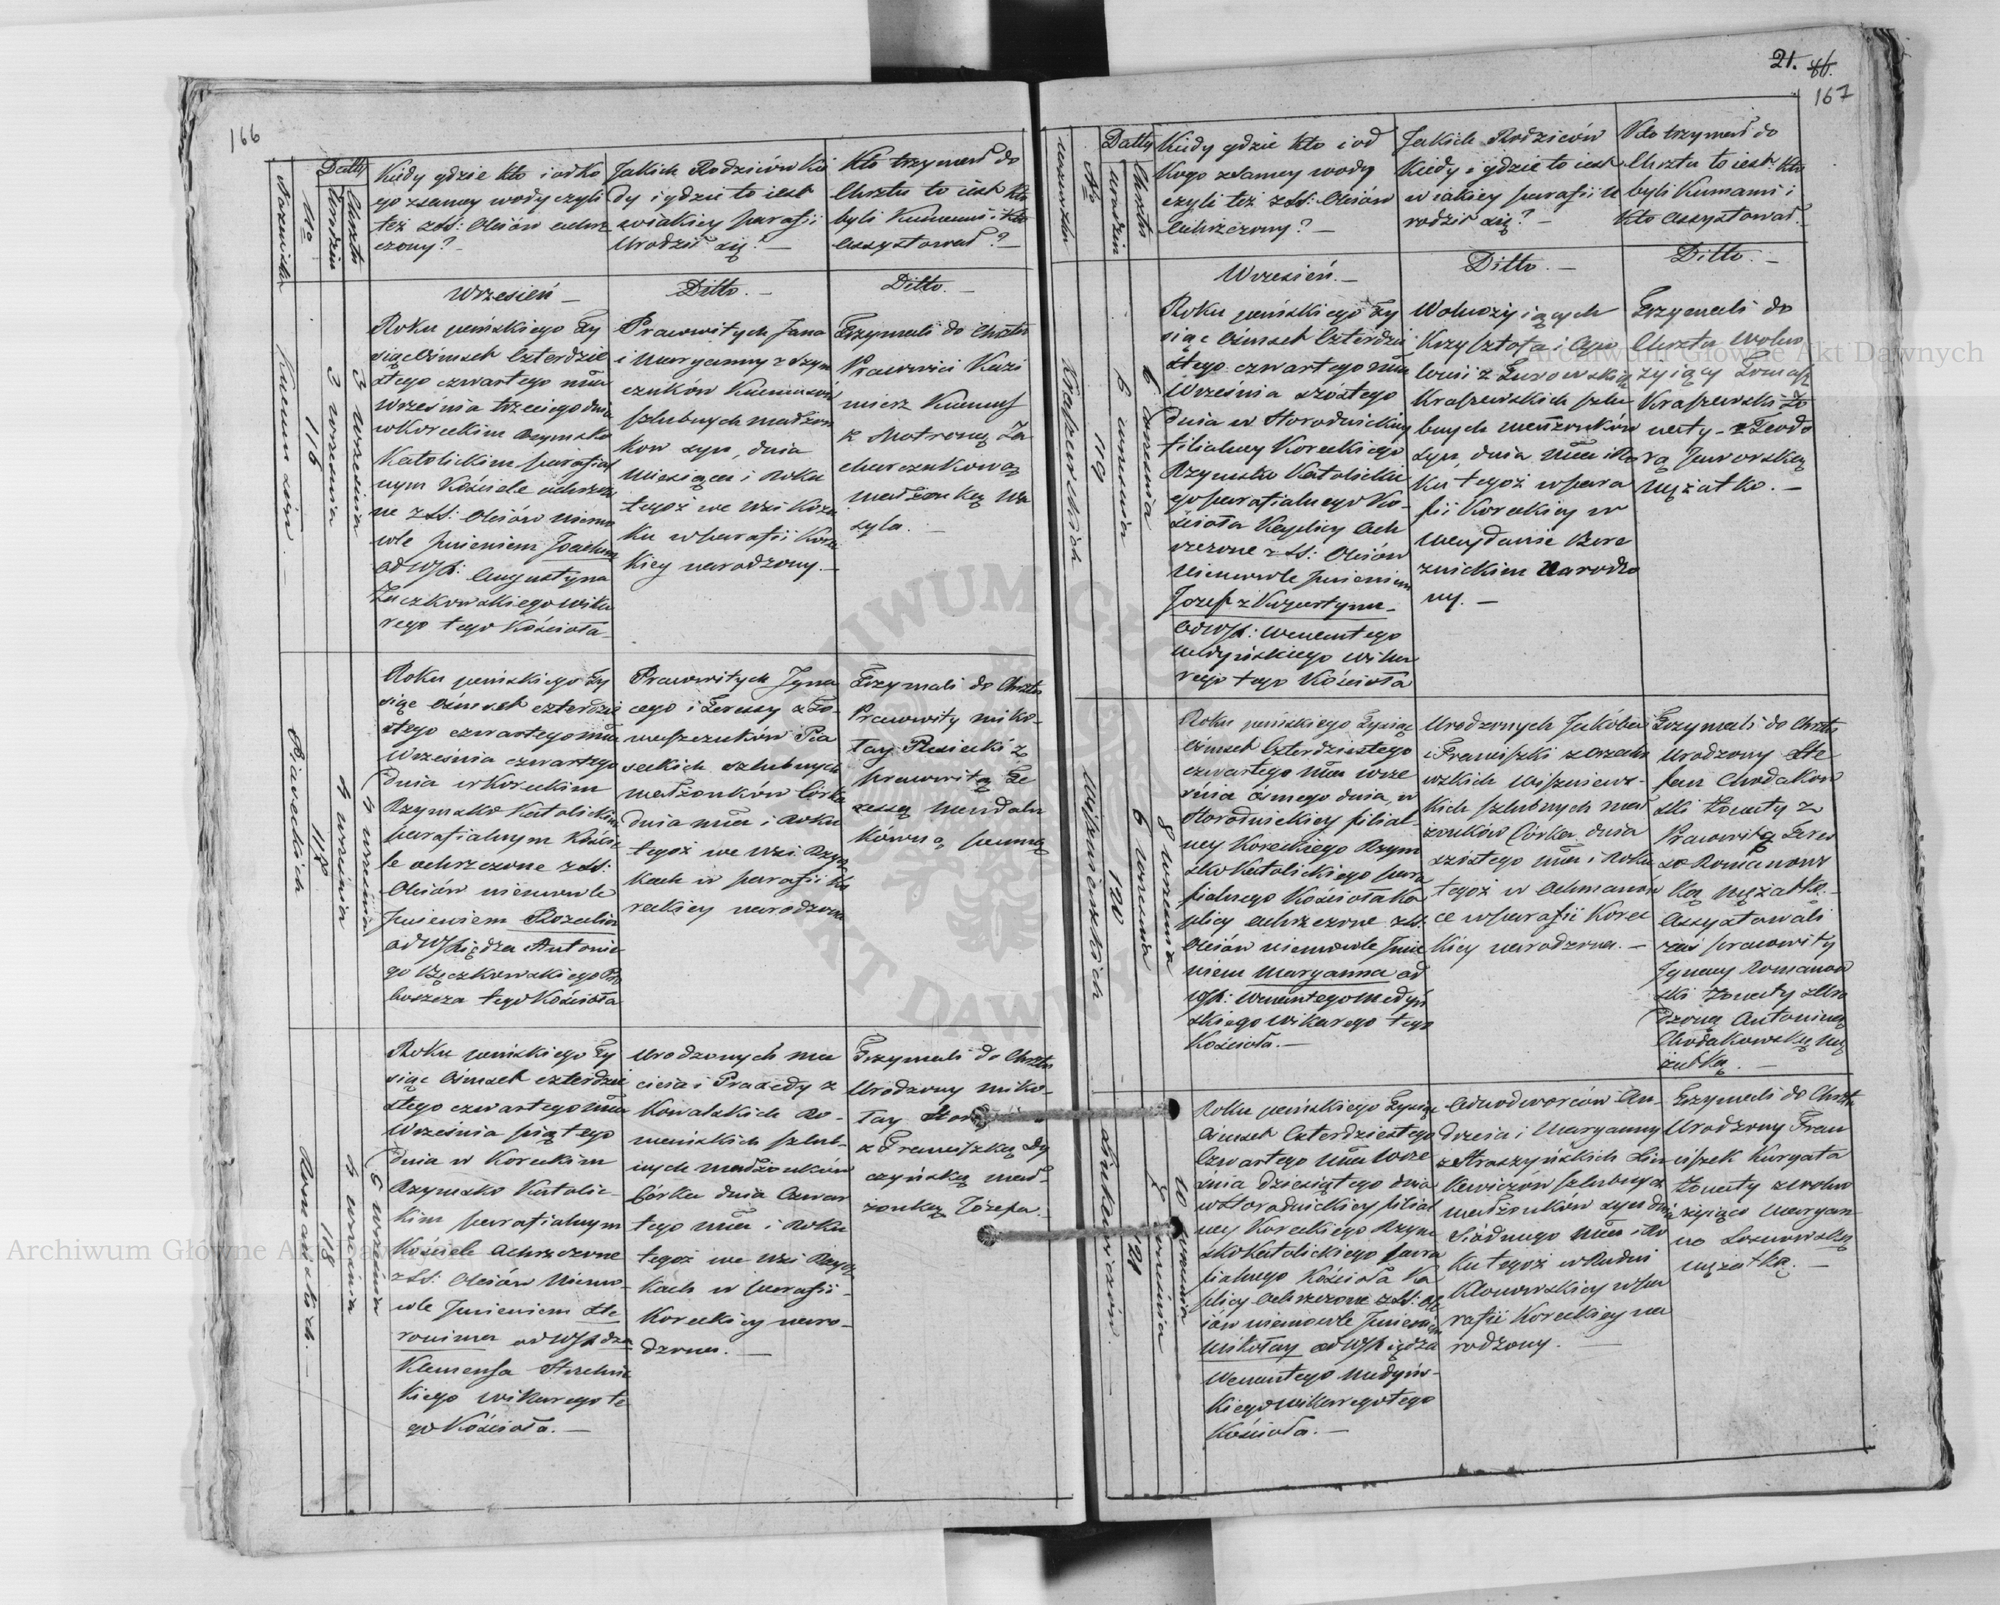 166
Nazwiska
No
Datty
Urodzin
Chrztu
Kiedy gdzie kto i od ko
go z samey wody czyli
też z SS: Olejów ochrz
czony? -
Jakich Rodziców Kie
dy i gdzie to iest
w iakiey parafii
Urodził się? -
Kto trzymał do
Chrztu to iest kto
byli Kumami i kto
assystował? -
Wrzesień -
Ditto. -
Ditto. -
116
3 Września
3 Września
Roku pańskiego Ty
siąc Ośmset Czterdzie
stego czwartego mca
Września trzeciego dnia
w Koreckim Rzymsko
Katolickim parafial
nym Kościele ochrzczo
ne z SS: Olejów niemo
wle Imieniem Joachim
od WX: Augustyna
Żaczkowskiego Wika
rego tego Kościoła
Prawowitych Jana
i Maryanny z Szym
czuków
szlubnych małżon
ków syn, dnia
Miesiąca i Roku
tegoż we Wsi
w parafii Kore
kiey narodzony. -
Trzymali do Chrztu
Prawowici Kazi
mierz
z Motroną Za
charczukową
małżonką Wa
syla. -
4 Września
4 Września
Roku pańskiego Ty
siąc Ośmset czterdzie
stego czwartego mca
Września czwartego
dnia w Koreckim
Rzymsko Katolickim
parafialnym Koście
le ochrzczone z SS:
Olejów niemowle
Imieniem Rozalia
od WXiędza Antonie
go
boszcza tego Kościoła
Prawowitych Igna
cego i Teressy z To-
maszczuków Pia
seckich szlubnych
małżonków Córka
dnia mca i Roku
tegoż we Wsi Rzyn
kach w parafii Ko
reckiey narodzona
Trzymali do Chrztu
Prawowity Miko-
łay Piasecki z
prawowitą Te
ressą
kówną panną
118
5 Września
4 Września
Roku pańskiego Ty
siąc Ośmset czterdzie
stego czwartego mca
Września piątego
dnia w Koreckim
Rzymsko Katolic-
kim parafialnym
Kościele Ochrzczone
z SS: Olejów Niemo-
wle Imieniem He
ronima od WXiędza
Klemensa
kiego Wikarego te
go Kościoła. -
Urodzonych Ma
cieia i Praxedy z
Kowalskich Ro-
mańskich szlub-
nych małżonków
Córka dnia Czwar
tego mca i Roku
tegoż we Wsi
kach w parafii
Koreckiey naro-
dzona. -
Trzymali do Chrztu
Urodzony Miko-
łay
z Franciszką Dy
czyńską mał-
żonką Józefa. -
21. 
167
Nazwiska
No
Datty
Urodzin
Chrztu
Kiedy gdzie kto i od
Kogo z samey wody
czyli też z SS: Olejów
Ochrzczony? -
Jakich Rodziców
Kiedy i gdzie to iest
w iakiey parafii U
rodził się? -
Kto trzymał do
Chrztu to iest kto
byli Kumami i
kto assystował? -
Wrzesień. -
Ditto. -
Ditto. -
Kraszewskich
119
6 Września
6 Września
Roku pańskiego Ty
siąc Ośmset Czterdzie
stego czwartego mca
Września szóstego
dnia w Horodnickiey
filialney Koreckiego
Rzymsko Katolickie
go parafialnego Ko-
ścioła Kaplicy Och
rzczone z SS: Olejów
Niemowle Imieniem
Jozef z Kupertynu -
od WX: Wenantego
Medyńskiego Wika
rego tego Kościoła
Wolnożyiących
Krzysztofa i Apo
lonii z Turowskich
Kraszewskich szlu
bnych małżonków
syn, dnia mca i Ro
ku tegoż w para
fii Koreckiey w
Maydanie Bere
znickim Narodzo
ny. -
Trzymali do
Chrztu Wolno
żyiący Tomasz
Kraszewski żo
naty - z Teodo
rą Jaworską
mężatką. -
Wiszniewskich
120
8 Września
6 Września
Roku pańskiego Tysiąc
Ośmset Czterdziestego
czwartego mca Wrze
śnia ósmego dnia, w
Horodnickiey filial-
ney Koreckiego Rzym
sko Katolickiego para
fialnego Kościoła Ka
plicy ochrzczone z SS:
Olejów niemowle Imie
niem Maryanna od
WX: Wenantego Medyń
skiego Wikarego tego
Kościoła. -
Urodzonych Jakóba
i Franciszki z
wskich Wiszniews-
kich szlubnych mał
żonków Córka dnia
szóstego mca i Roku
tegoż w
ce w parafii Korec
kiey narodzona. -
Trzymali do Chrztu
Urodzony Ste
fan Chodakow
ski żonaty z
Prawowitą Teres
są Romanows
ką mężatką. -
Assystowali
zaś prawowity
Ignacy Romanow
ski żonaty z Uro
dzoną Antoniną
Chodakowską mę
żatką. -
Linkiewiczów
10 Września
7 Września
Roku pańskiego Tysiąc
Ośmset Czterdziestego
Czwartego mca Wrze
śnia dziesiątego dnia
w Horodnickiey filial
ney Koreckiego Rzym
sko Katolickiego para
fialnego Kościoła Ka
plicy Ochrzczone z SS: Ole
iów niemowle Imieniem
Mikołay od WXiędza
Wenantego Medyńs-
kiego Wikarego tego
Kościoła. -
Odnodworców An-
drzeia i Maryanny
z Straszyńskich Lin
kiewiczów szlubnych
małżonków syn dnia
Siódmego mca i Ro
ku tegoż w Rudni
Klonowskiey w pa
rafii Koreckiey na
rodzony. -
Trzymali do Chrztu
Urodzony Fran
ciszek Kurgata
żonaty z wolno
żyiącą Maryan
ną Sosnowską
mężatką. -
Archiwum Główne Akt Dawnych
Archiwum Główne Akt Dawnych
ARCHIWUM GŁÓWNE AKT DAWNYCH